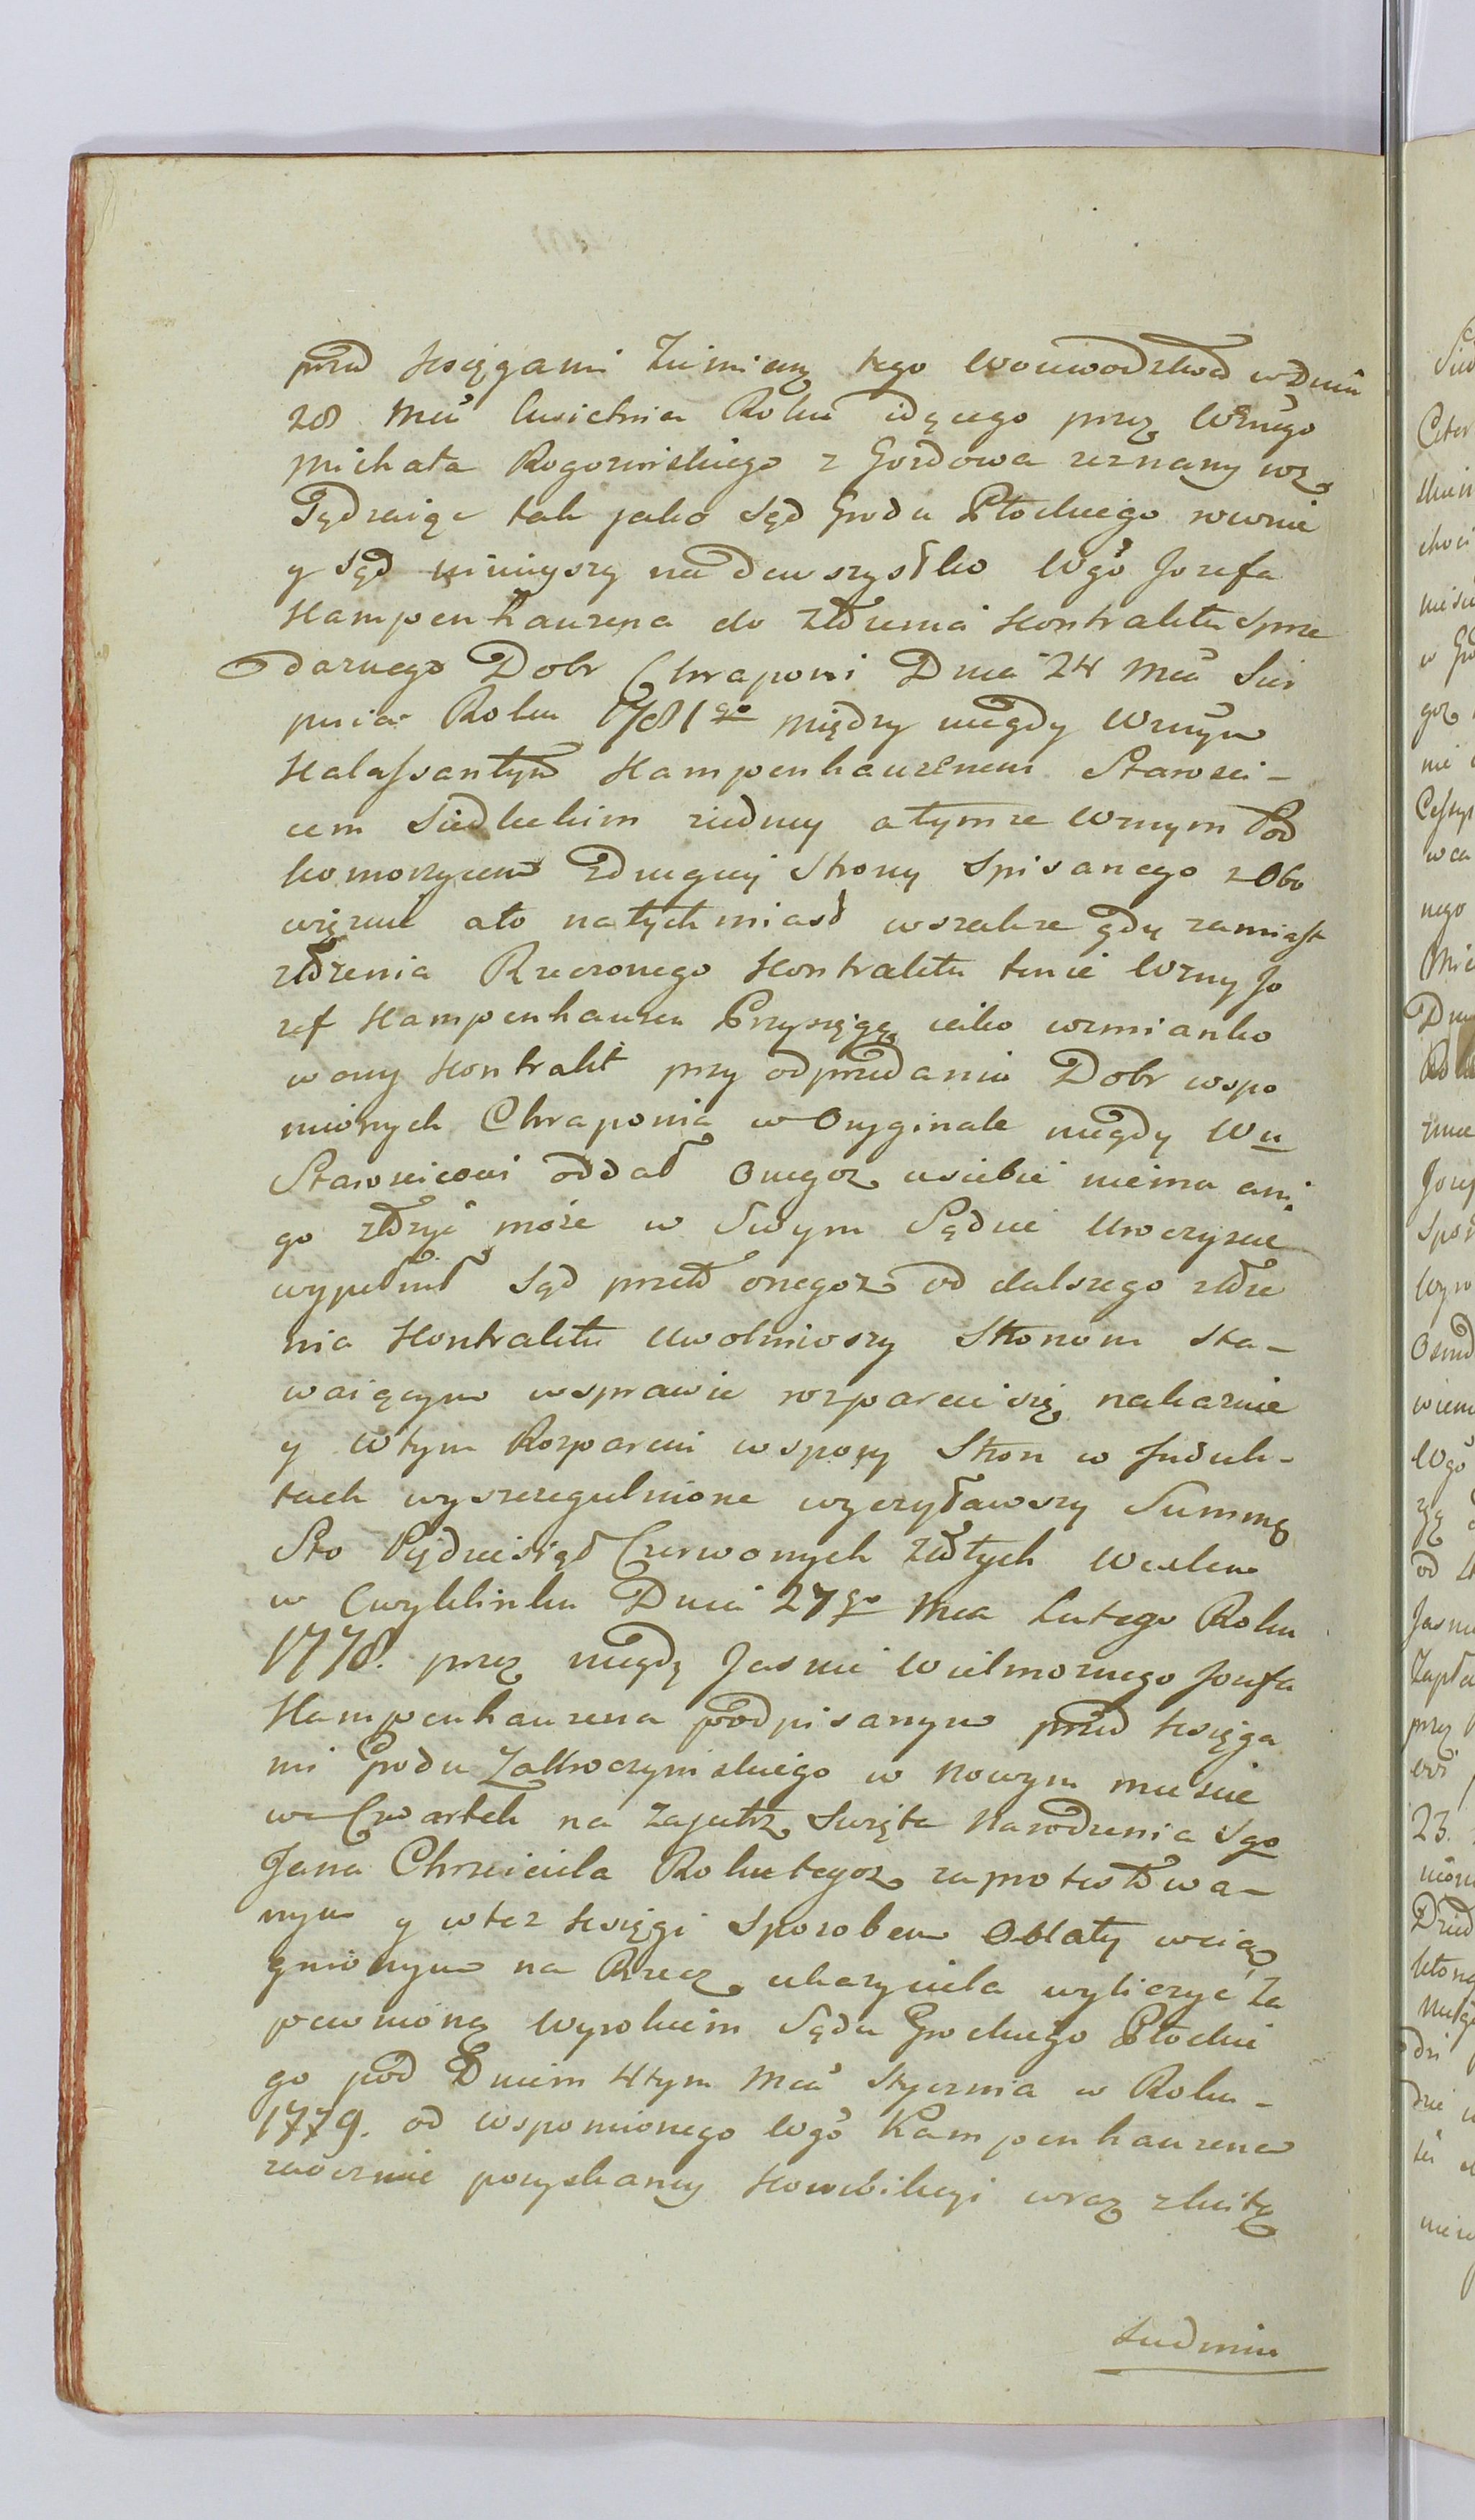 przed Księgami Ziemiemi tego Woiewodztwa w Dniu
28 Mca Kwietnia Roku idącego przez Wznego
Michała Rogozinskiego z Gordowa zeznany wz
Sądzaiąc tak jako Sąd Grodu Płockiego rownie
y Sąd ninieyszy na dewszystko Wgo Jozefa
Kampenhauzena do złożenia Kontraktu Sprze
darnego Dobr Chraponi Dnia 24 Mca Sier
pnia Roku 1781go między niegdy Wznym
Kalassantym Kampenhauzenem Starosci-
cem Siedleckim ziedney a tymże Wznym Pod
komorzycem zdrugiey Strony Spisanego zobo
wiązuie ato natychmiast wszakze gdy zamiast
złożenia Rzeczonego Kontraktu tenze Wzny Jo
zef Kampenhauzen Przysięgę iako wzmianko
wany Kontrakt przy odprzedaniu Dobr wspo
mnionych Chraponia w Oryginale niegdy Wu
Staroscicowi oddał onegoz usiebie niema ani
go złożyć może w Swym Sądzie Uroczyscie
wypełnił Sąd przeto onegoz od dalszego złoże
nia Kontraktu Uwolniwszy Stronom sta-
waiącym wsprawie rozparcie się nakazuie
y w tym Rozparciu wspory Stron w Induk-
tach wyszczegulnione wyczytawszy Summę
Sto Pędziesiąt Czerwonych Złłotych Wexlem
w Cwyklinku Dnia 27go Mca Lutego Roku
1778. przez niegdy Jasnie Wielmoznego Jozefa
Kampenhauzena podpisanym przed Xsięga
mi Grodu Zakroczymskiego w Nowym miescie
we Czwartek na zajutrz Swięta Narodzenia Sgo
Jana Chrzciciela Roku tegoz zaprotestowa-
nym y wtez Księgi Sposobem Oblaty wcią
gnionym na Rzecz ukaziciela wyliczyć za
pewnioną Wyrokiem Sądu Grodzkiego Płockie
go pod Dniem 4tym Mca Stycznia w Roku-
1779. od wspomnionego Wgo Kampenhauzena
zaocznie pozyskanym Kondikcyi wraz zkaitę
Siedmiu